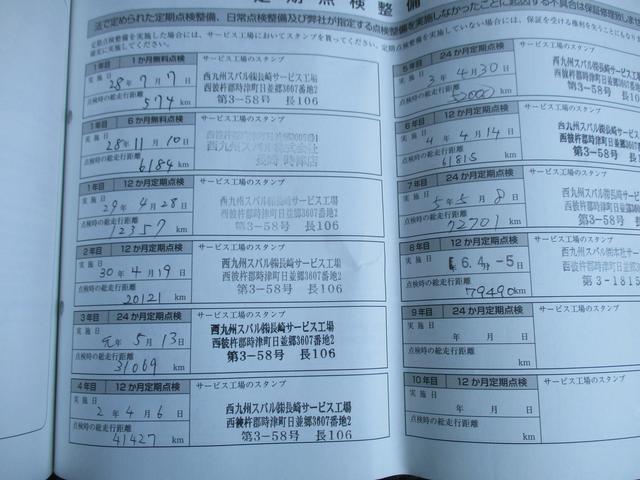 定期点検整備
法で定められた定期点検整備、日常点検整備及び弊社が指定する点検整備を実施しなかったことに起因する不具合は保証修理致し
定期点検整備を実施した場合は、サービス工場においてスタンプを貰ってください。定期点検整備を実施していない場合には、保証を受ける権利を失うことになりま
確実に実施してください。
1年目 1か月無料点検
サービス工場のスタンプ
実施日 28年7月7日
点検時の総走行距離
574 km
西九州スバル㈱長崎サービス工場
西彼杵郡時津町日並郷3607番地2
第3-58号 長106
1年目 6か月無料点検
サービス工場のスタンプ
実施日 28年11月10日
点検時の総走行距離
6184 km
西九州スバル株式会社
長崎 時津店
1年目 12か月定期点検
サービス工場のスタンプ
実施日 29年4月28日
点検時の総走行距離
12357 km
西九州スバル㈱長崎サービス工場
西彼杵郡時津町日並郷3607番地2
第3-58号 長106
2年目 12か月定期点検
サービス工場のスタンプ
実施日 30年4月19日
点検時の総走行距離
20121 km
西九州スバル㈱長崎サービス工場
西彼杵郡時津町日並郷3607番地2
第3-58号 長106
3年目 24か月定期点検
サービス工場のスタンプ
実施日 元年5月13日
点検時の総走行距離
31069 km
西九州スバル㈱長崎サービス工場
西彼杵郡時津町日並郷3607番地2
第3-58号 長106
4年目 12か月定期点検
サービス工場のスタンプ
実施日 2年4月6日
点検時の総走行距離
41427 km
西九州スバル㈱長崎サービス工場
西彼杵郡時津町日並郷3607番地2
第3-58号 長106
5年目 24か月定期点検
サービス工場のスタンプ
実施日 3年4月30日
点検時の総走行距離
km
西九州スバル㈱長崎サービス
西彼杵郡時津町日並郷3607
第3-58号
6年目 12か月定期点検
サービス工場のスタンプ
実施日 4年4月14日
点検時の総走行距離
61815 km
西九州スバル㈱長崎サービス
西彼杵郡時津町日並郷3607
第3-58号
7年目 24か月定期点検
サービス工場のスタンプ
実施日 5年5月8日
点検時の総走行距離
72701 km
西九州スバル㈱長崎サービ
西彼杵郡時津町日並郷36
第3-58号
8年目 12か月定期点検
サービス工場のスタンプ
実施日 6.4.-5日
点検時の総走行距離
79490 km
西九州スバル㈱本社サー
第3-1815
9年目 24か月定期点検
サービス工場のスタンプ
実施日 年 月 日
点検時の総走行距離
km
10年目 12か月定期点検
サービス工場のスタンプ
実施日 年 月 日
点検時の総走行距離
km